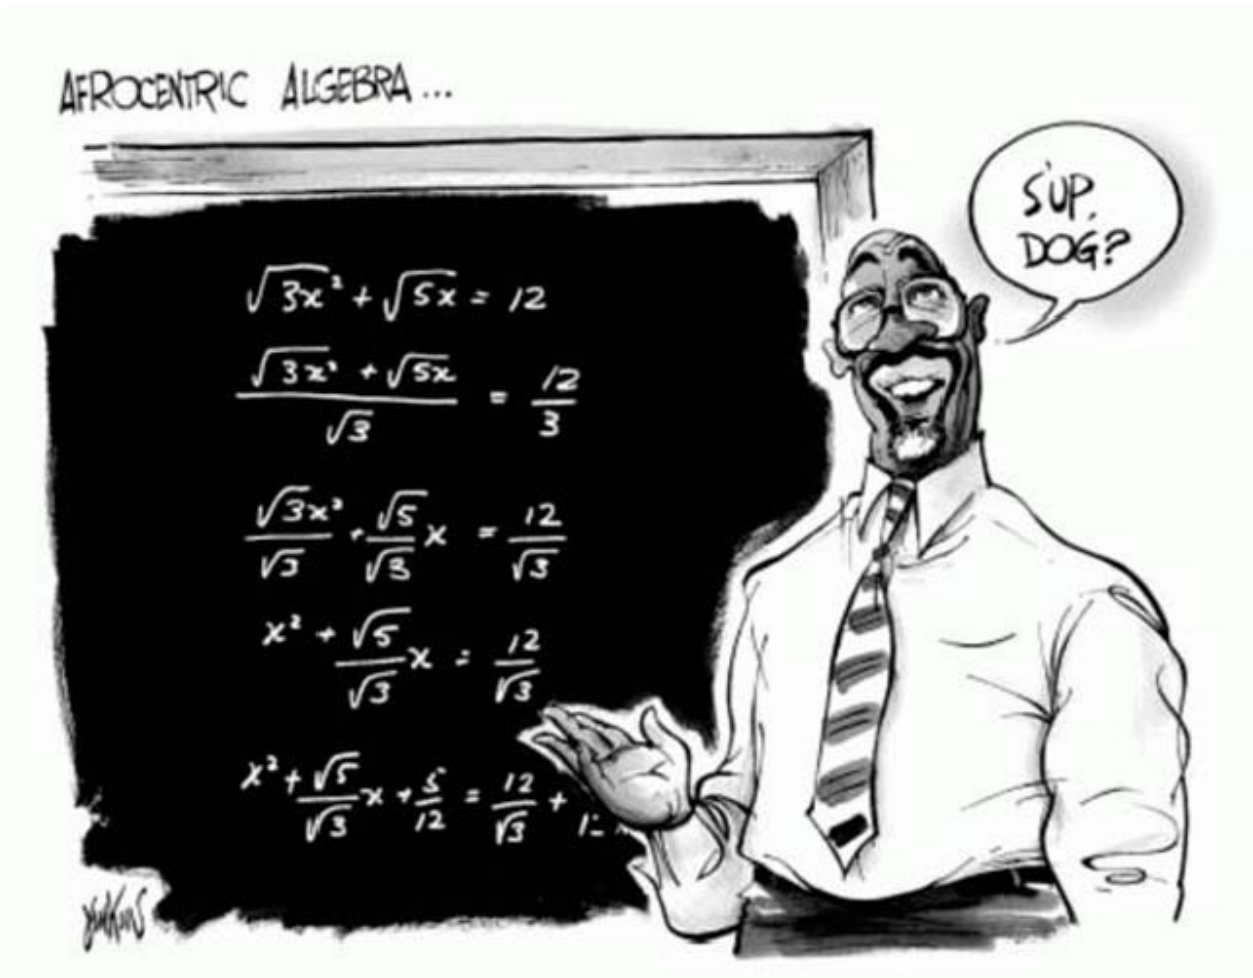 AFROCENTRIC ALGEBRA...
S'UP, DOG?
√3x² + √5x = 12
(√3x² + √5x)/√3 = 12/3
√3x²/√3 + √5/√3 x = 12/√3
x² + √5/√3 x = 12/√3
x² + √5/√3 x + 5/12 = 12/√3 +